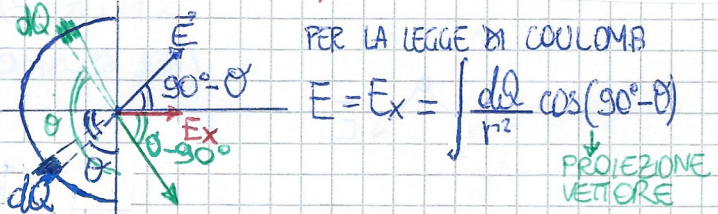 dQ
E
90°-θ
Ex
θ
θ-90°
θ
dQ
PER LA LEGGE DI COULOMB
E = Ex = ∫ dQ/r² cos(90°-θ)
PROIEZIONE
VETTORE